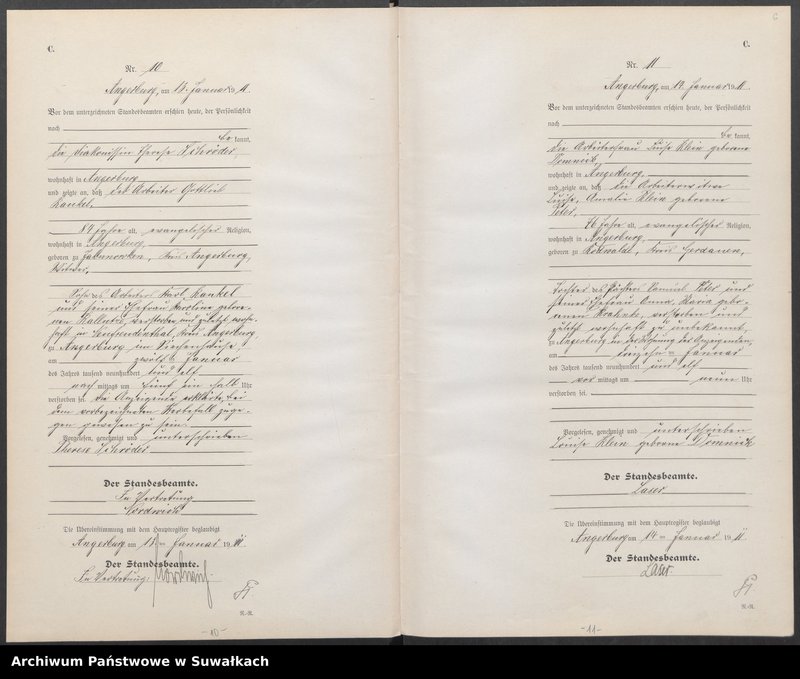 C.
Nr. 10
Angerburg, am 13. Januar 1911.
Vor dem unterzeichneten Standesbeamten erschien heute, der Persönlichkeit
nach
be kannt,
die Diakonissin Therese Schröder
wohnhaft in Angerburg
und zeigte an, daß der Arbeiter Gottlieb
Kankel,
84 Jahre alt, evangelischer Religion,
wohnhaft in Angerburg,
geboren zu Kreis Angerburg,
Witwer,
Sohn des Arbeiters Karl Kankel
und seiner Ehefrau Karoline gebore-
nen verstorben und zuletzt wohn-
haft in Kreis Angerburg,
zu Angerburg im Siechenhause
am zwölften Januar
des Jahres tausend neunhundert und elf
nach mittags um fünf ein halb Uhr
verstorben sei. Die Anzeigende erklärte, bei
dem vorbezeichneten Sterbefall zuge-
gen gewesen zu sein.
Vorgelesen, genehmigt und unterschrieben
Therese Schröder
Der Standesbeamte.
In Vertretung
Nordwich
Die Übereinstimmung mit dem Hauptregister beglaubigt
Angerburg am 13ten Januar 1911.
Der Standesbeamte.
In Vertretung:
R.-R.
-10-
6
C.
Nr. 11
Angerburg, am 14. Januar 1911.
Vor dem unterzeichneten Standesbeamten erschien heute, der Persönlichkeit
nach
be kannt,
die Arbeiterfrau Luise Klein geborene
Domnick,
wohnhaft in Angerburg,
und zeigte an, daß die Arbeiterwitwe
Luise, Amalie Klein geborene
Peter,
76 Jahre alt, evangelischer Religion,
wohnhaft in Angerburg,
geboren zu Kreis Gerdauen,
Tochter des Samuel Peter und
seiner Ehefrau Anna, Maria gebo-
renen verstorben und
zuletzt wohnhaft zu unbekannt,
zu Angerburg in der Wohnung der Anzeigenden,
am Januar
des Jahres tausend neunhundert und elf
vor mittags um neun Uhr
verstorben sei.
Vorgelesen, genehmigt und unterschrieben
Louise Klein geborene Domnick
Der Standesbeamte.
Laser
Die Übereinstimmung mit dem Hauptregister beglaubigt
Angerburg am 14ten Januar 1911
Der Standesbeamte.
Laser
R.-R.
-11-
Archiwum Państwowe w Suwałkach